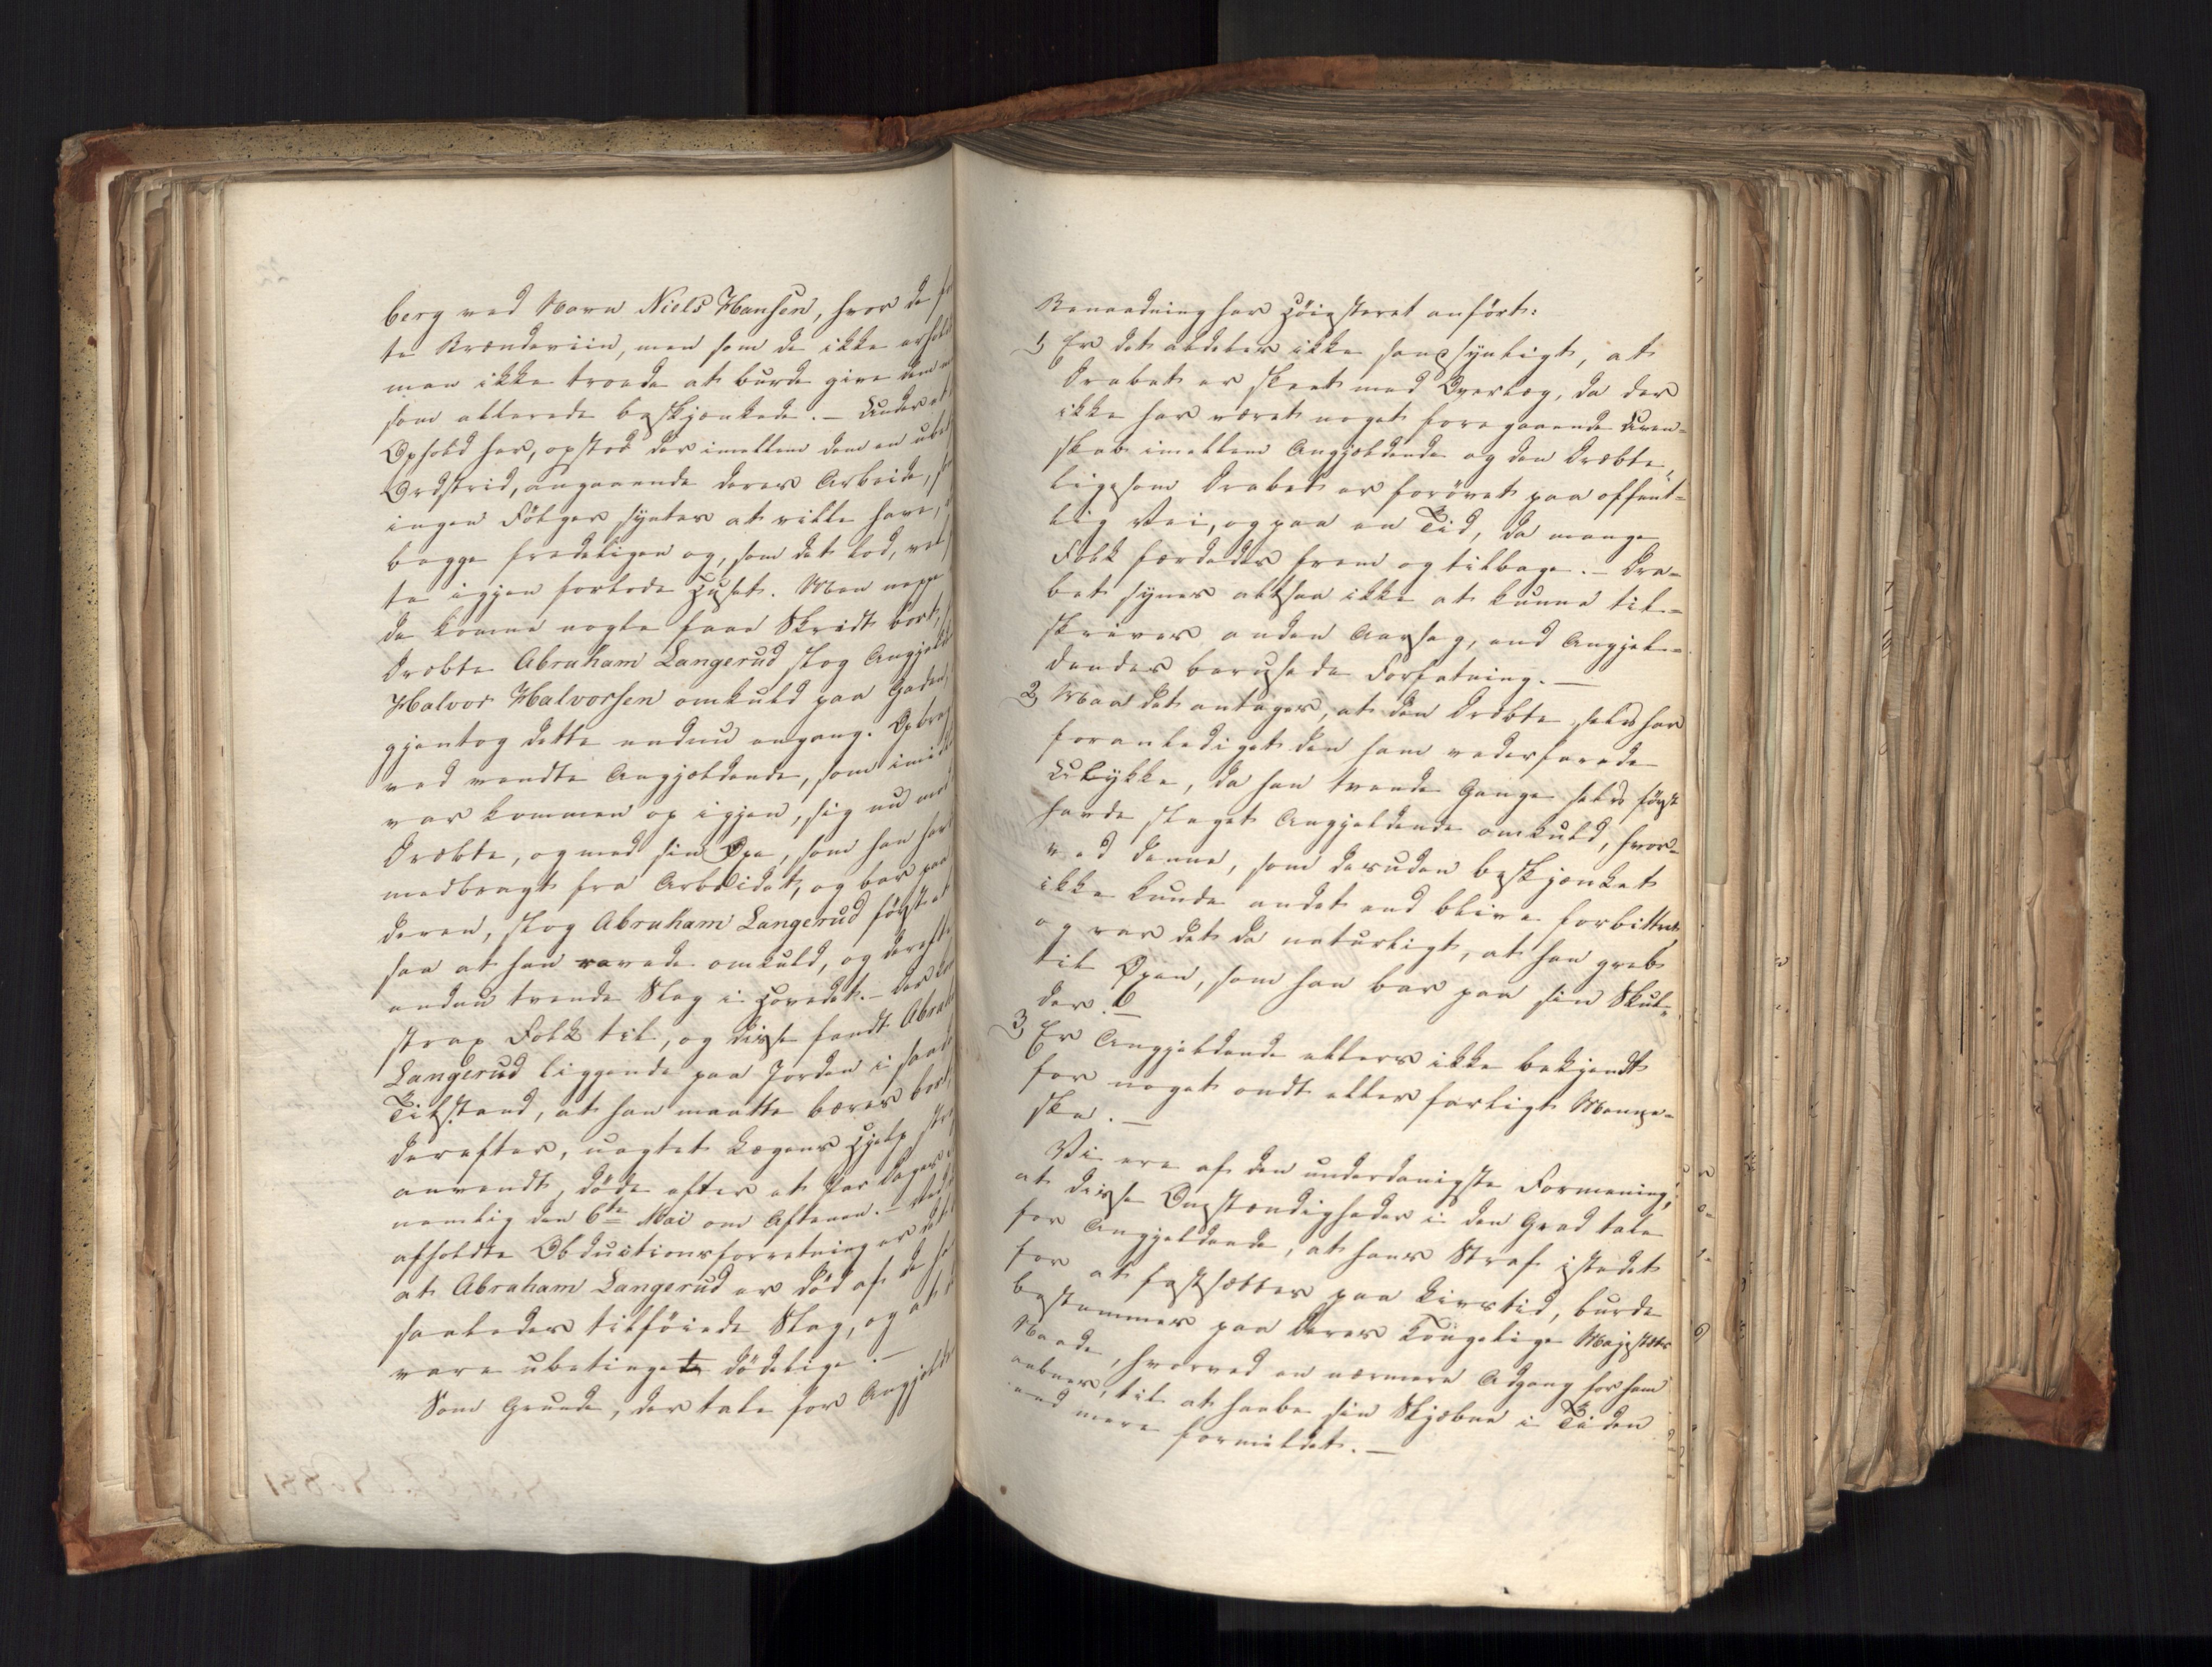 berg ved Navn Niels Hansen, hvor de
te Brændeviin, men som de ikke
man ikke troede at burde give dem
som allerede beskjænkede. – Under
Ophold her, opstod der imellem dem en
Ordstrid, angaaende deres Arbeide,
ingen Følger syntes at ville have,
begge fredeligen og, som det lod,
te igjen forlode Huset. Men neppe
de komne nogle faae Skridt bort,
dræbte Abraham Langerud slog
Halvor Halvorsen omkuld paa Gaden,
gjentog dette endnu engang.
ved vendte Angjældende, som
var kommen op igjen, sig nu mod
Dræbte, og med sin Øxe, som han
medbragt fra Arbeidet, og bar paa
deren, slog Abraham Langerud først
saa at han ravede omkuld, og
endnu trende Slag i Hovedet. – Der
strax Folk til, og disse fandt
Langerud liggende paa Jorden i
Tilstand, at han maatte bæres bort,
derefter, uagtet Lægens Hjelp
anvendt, døde efter et Par Dages
nemlig den 6te Mai om Aftenen. –
afholdte Obductionsforretning er
at Abraham Langerud er død af de
saaledes tilføiede Slag, og at
vare ubetingede dødelige. –
Som Grunde, der tale for
Benaadning har Høiesteret anført:
1) Er det aldeles ikke sandsynligt, at
Drabet er skeet med Overlæg, da der
ikke har været noget foregaaende Uven-
skab imellem Angjældende og den Dræbte,
ligesom Drabet er forøvet paa offent-
lig Vei, og paa en Tid, da mange
Folk færdedes frem og tilbage. – Dra-
bet synes altsaa ikke at kunne til-
skrives anden Aarsag, end Angjæl-
dendes berusede Forfatning. –
2) Maa det antages, at den Dræbte selv har
foranlediget den ham vederfarede
Ulykke, da han tvende Gange selv først
havde slaget Angjældende omkuld, hvor-
ved denne, som desuden beskjænket
ikke kunde andet end blive forbittret
og var det da naturligt, at han greb
til Øxen, som han bar paa sin Skul-
der. –
3) Er Angjældende ellers ikke bekjendt
for noget ondt eller farligt Menne-
ske. –
Vi ere af den underdanigste Formening,
at disse Omstændigheder i den Grad tale
for Angjældende, at hans Straf istedet
for at fastsættes paa Livstid, burde
bestemmes paa Deres Kongelige Majestæts
Naade, hvorved en nærmere Adgang for ham
aabnes, til at haabe sin Skjæbne i Tiden
end mere formildet. –